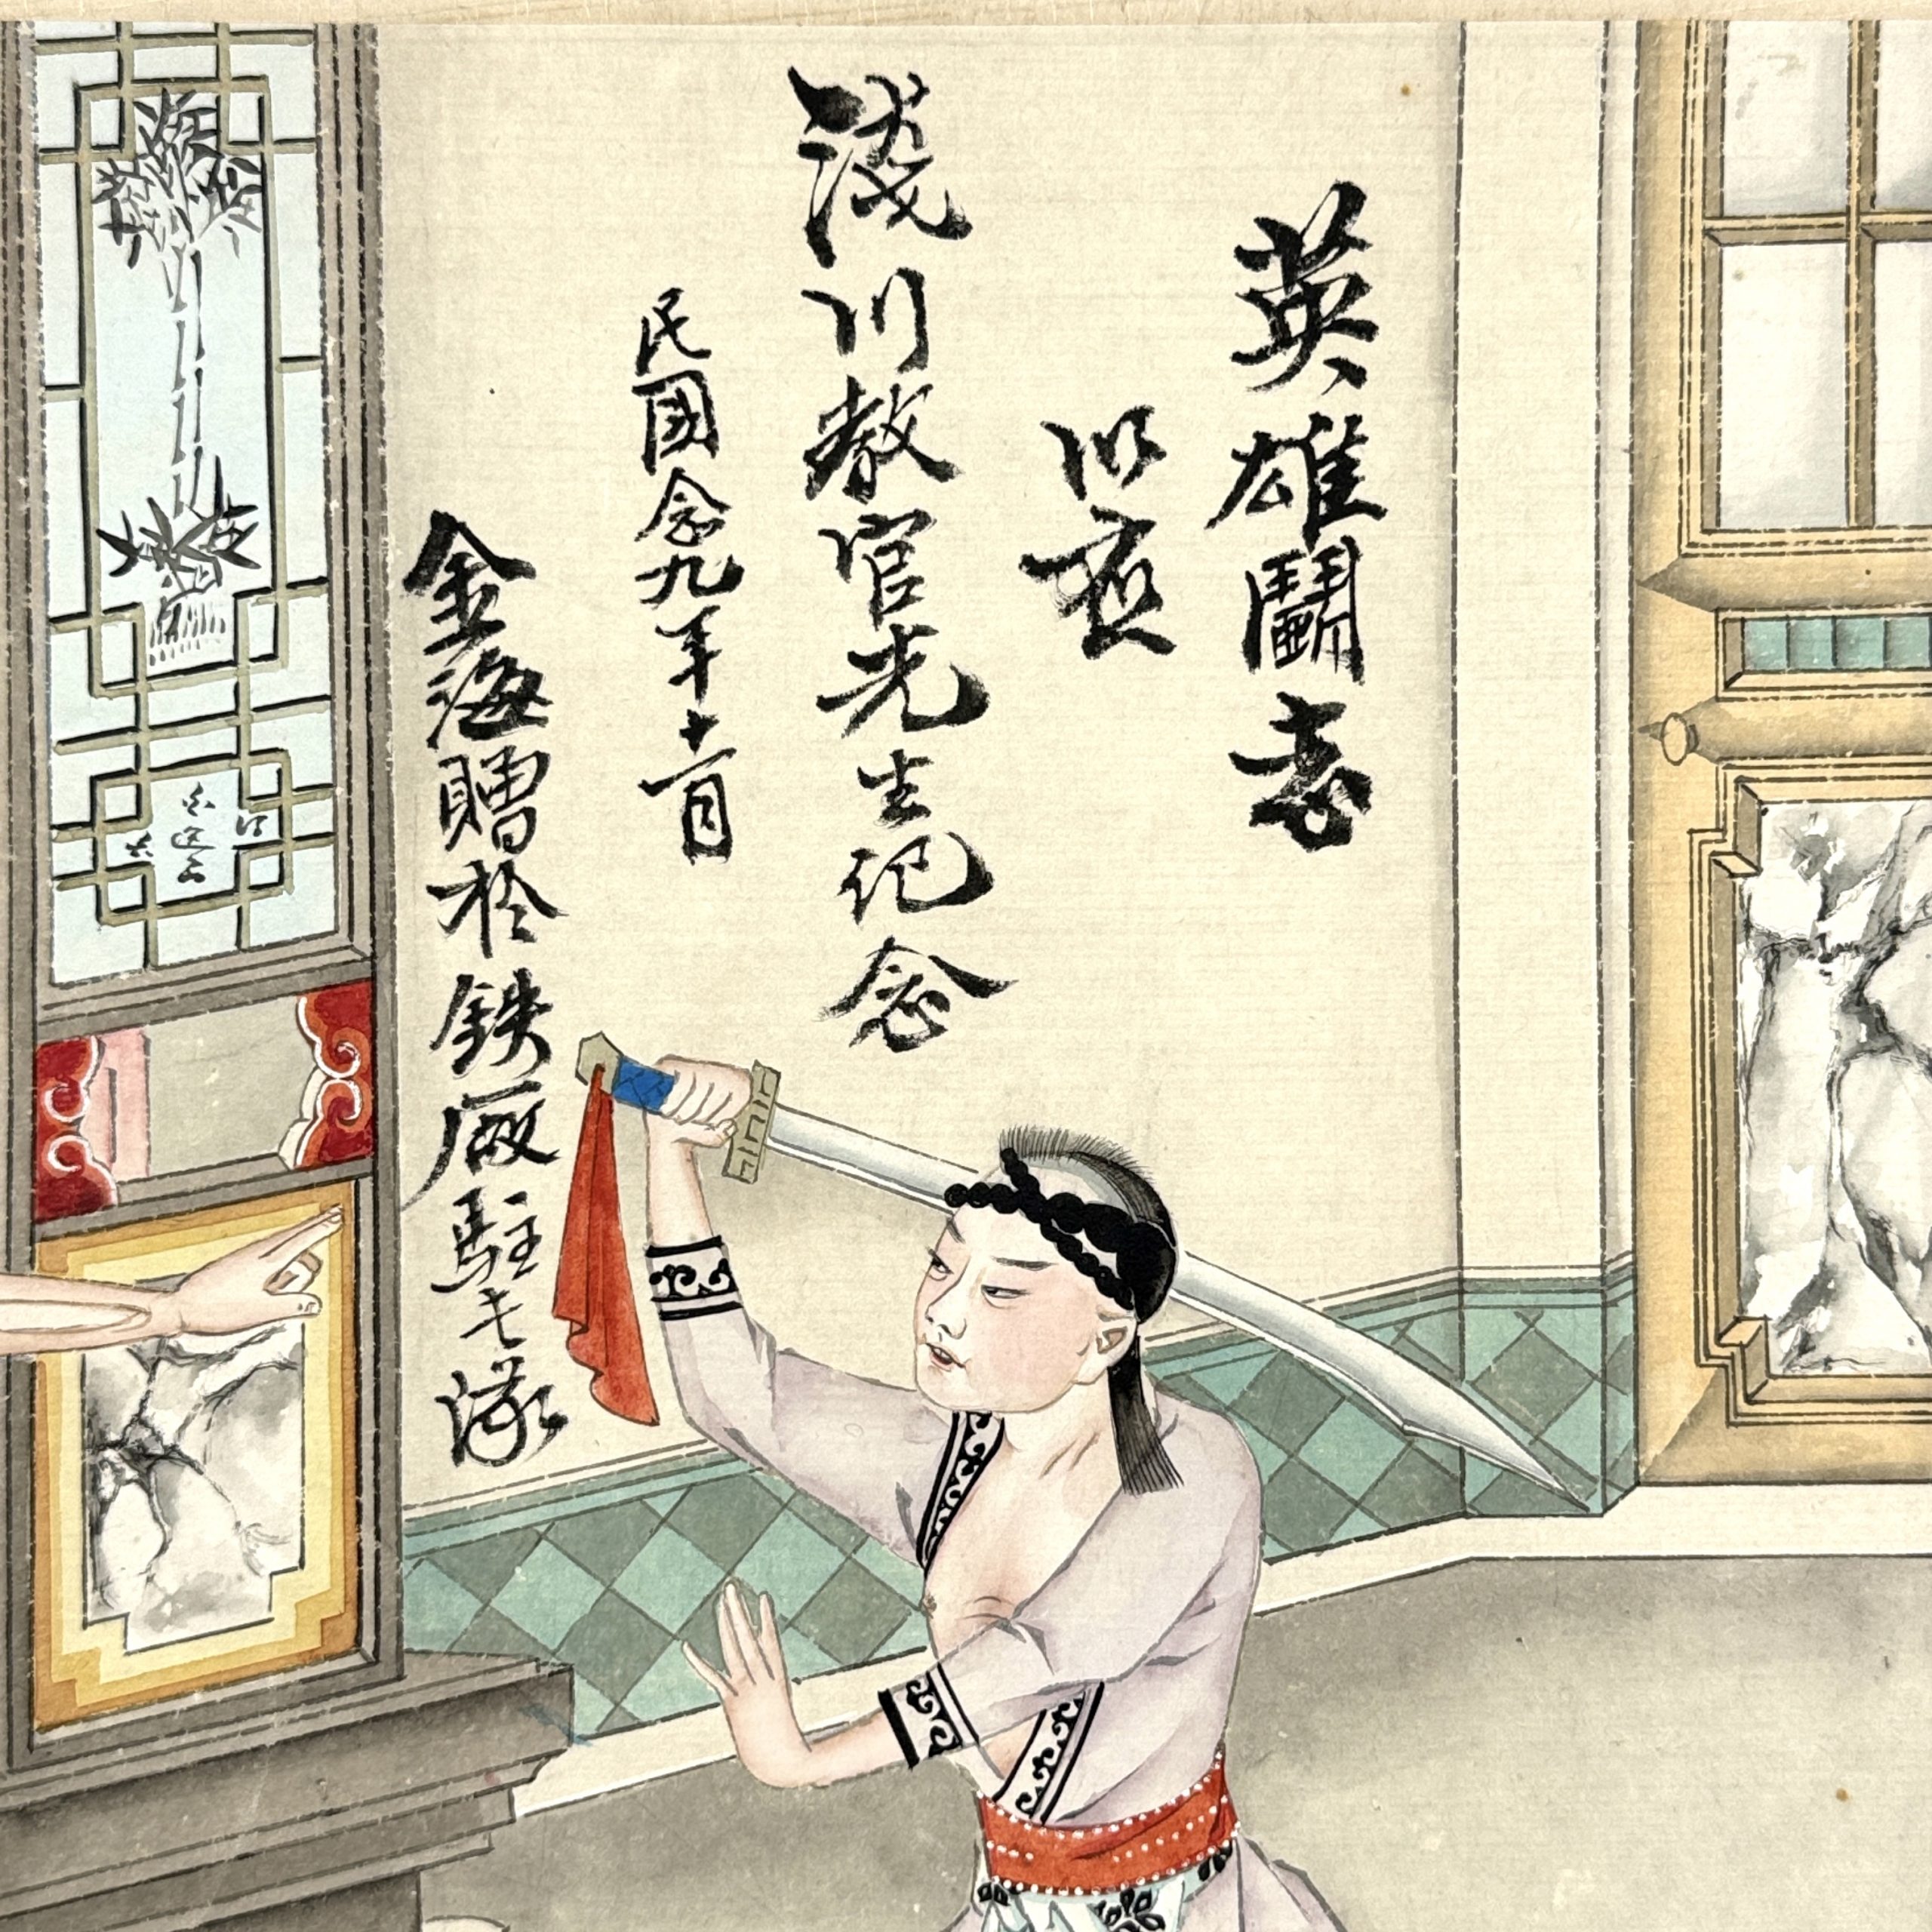 英雄鬪志
以惑
淺川教官先生紀念
民國念九年十一月
金海贈於鉄廠駐七隊